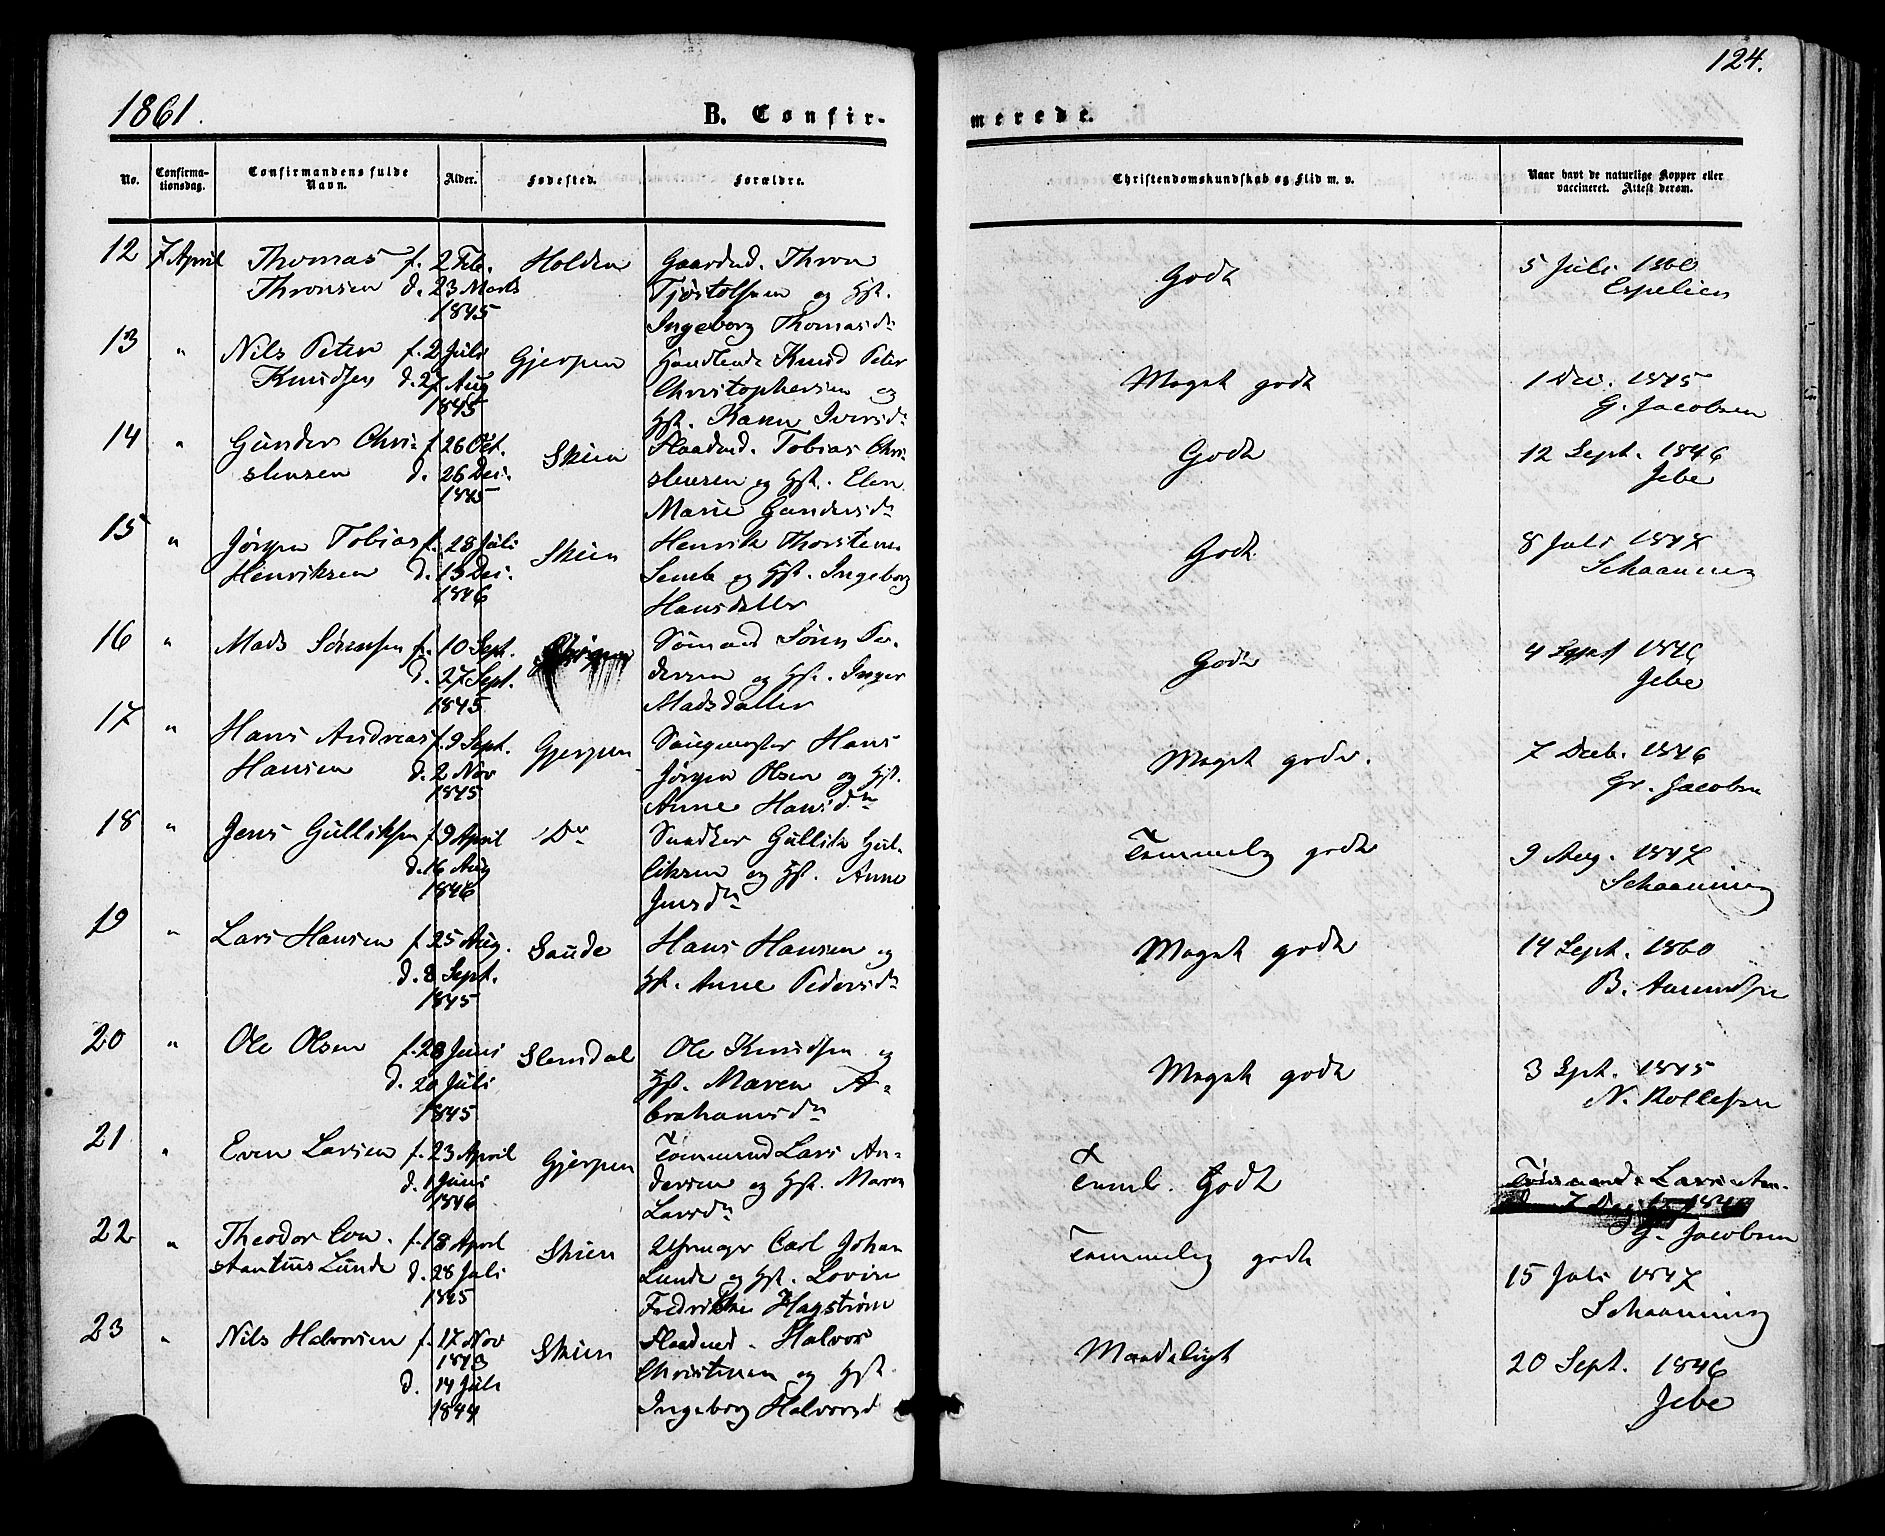 124.
1861.
B. Confir-
merede.
No.
Confirma-
tionsdag.
Confirmandens fulde
Navn.
Alder.
Fødested.
Forældre.
Christendomskundskab og Flid m. v.
Naar havt de naturlige Kopper eller
vaccineret. Attest derom.
12 7 April Thomas f. 2 Feb. Holden Gaardmd. Thron Godt 5 Juli 1860
Thronsen d. 23 Marts Tjøstolfsen og Hst. Espelien
1845 Ingeborg Thomasdr
13 " Nils Peter f. 2 Juli Gjerpen Knud Peter Meget godt 1 Dec. 1845
Knudsen d. 27 Aug Christophersen og G. Jacobsen
1845 Hst. Karen Iversdr
14 " Gunder Chri- f 26 Oct. Skien Flaadmd. Tobias Chri- Godt 12 Sept. 1846
stensen d. 26 Dec. stensen og Hst. Elen Jebe
1845 Marie Gundersdr
15 " Jørgen Tobias f. 28 Juli Skien Henrik Thorstens. Godt 8 Juli 1847
Henriksen d. 13 Dec. og Hst. Ingeborg Schaanning
1846 Hansdatter
16 " Mads Sørensen f. 10 Sept. Sømand Søren Pe- Godt 4 Sept 1846
d. 27 Sept. dersen og Hst. Inger Jebe
1845 Madsdatter
17 " Hans Andreas f. 9 Sept. Gjerpen Saugmester Hans Meget godt. 7 Decb. 1846
Hansen d. 2 Nov Jørgen Olsen og Hst. Gr. Jacobsen
1845 Anne Hansdr
18 " Jens Gulliksen f 9 April Do Snedker Gullik Gul- Temmelig godt 9 Aug. 1847
d. 16 Aug liksen og Hst. Anne Schaanning
1846 Jensdr
19 " Lars Hansen f. 25 Aug. Saude Hans Hansen og Meget godt 14 Sept. 1860
d. 8 Sept. Hst. Anne Pedersdr B. Amundsen
1845
20 " Ole Olsen f. 28 Juni Slemdal Ole Knudsen og Meget godt 3 Spt. 1845
d. 20 Juli Hst. Maren A- N. Rollefsen
1845 brahamsdr
21 " Even Larsen f. 23 April Gjerpen Tømmermd Lars An- Teml. Godt Lars An-
d. 1 Juni dersen og Hst. Maren
1846 Larsdr G. Jacobsen
22 " Theodor Con- f. 18 April Skien Uhrmager Carl Johan Temmelig godt
stantius Lunde d. 28 Juli Lunde og Hst. Lovise 15 Juli 1847
1845 Fredrikke Hagstrøm Schaanning
23 " Nils Halvorsen f. 17 Nov Skien Flaadmd. Halvor Maadeligt
1843 Christensen og Hst. 20 Sept. 1846
d. 14 Juli Ingeborg Halvorsd Jebe
1844